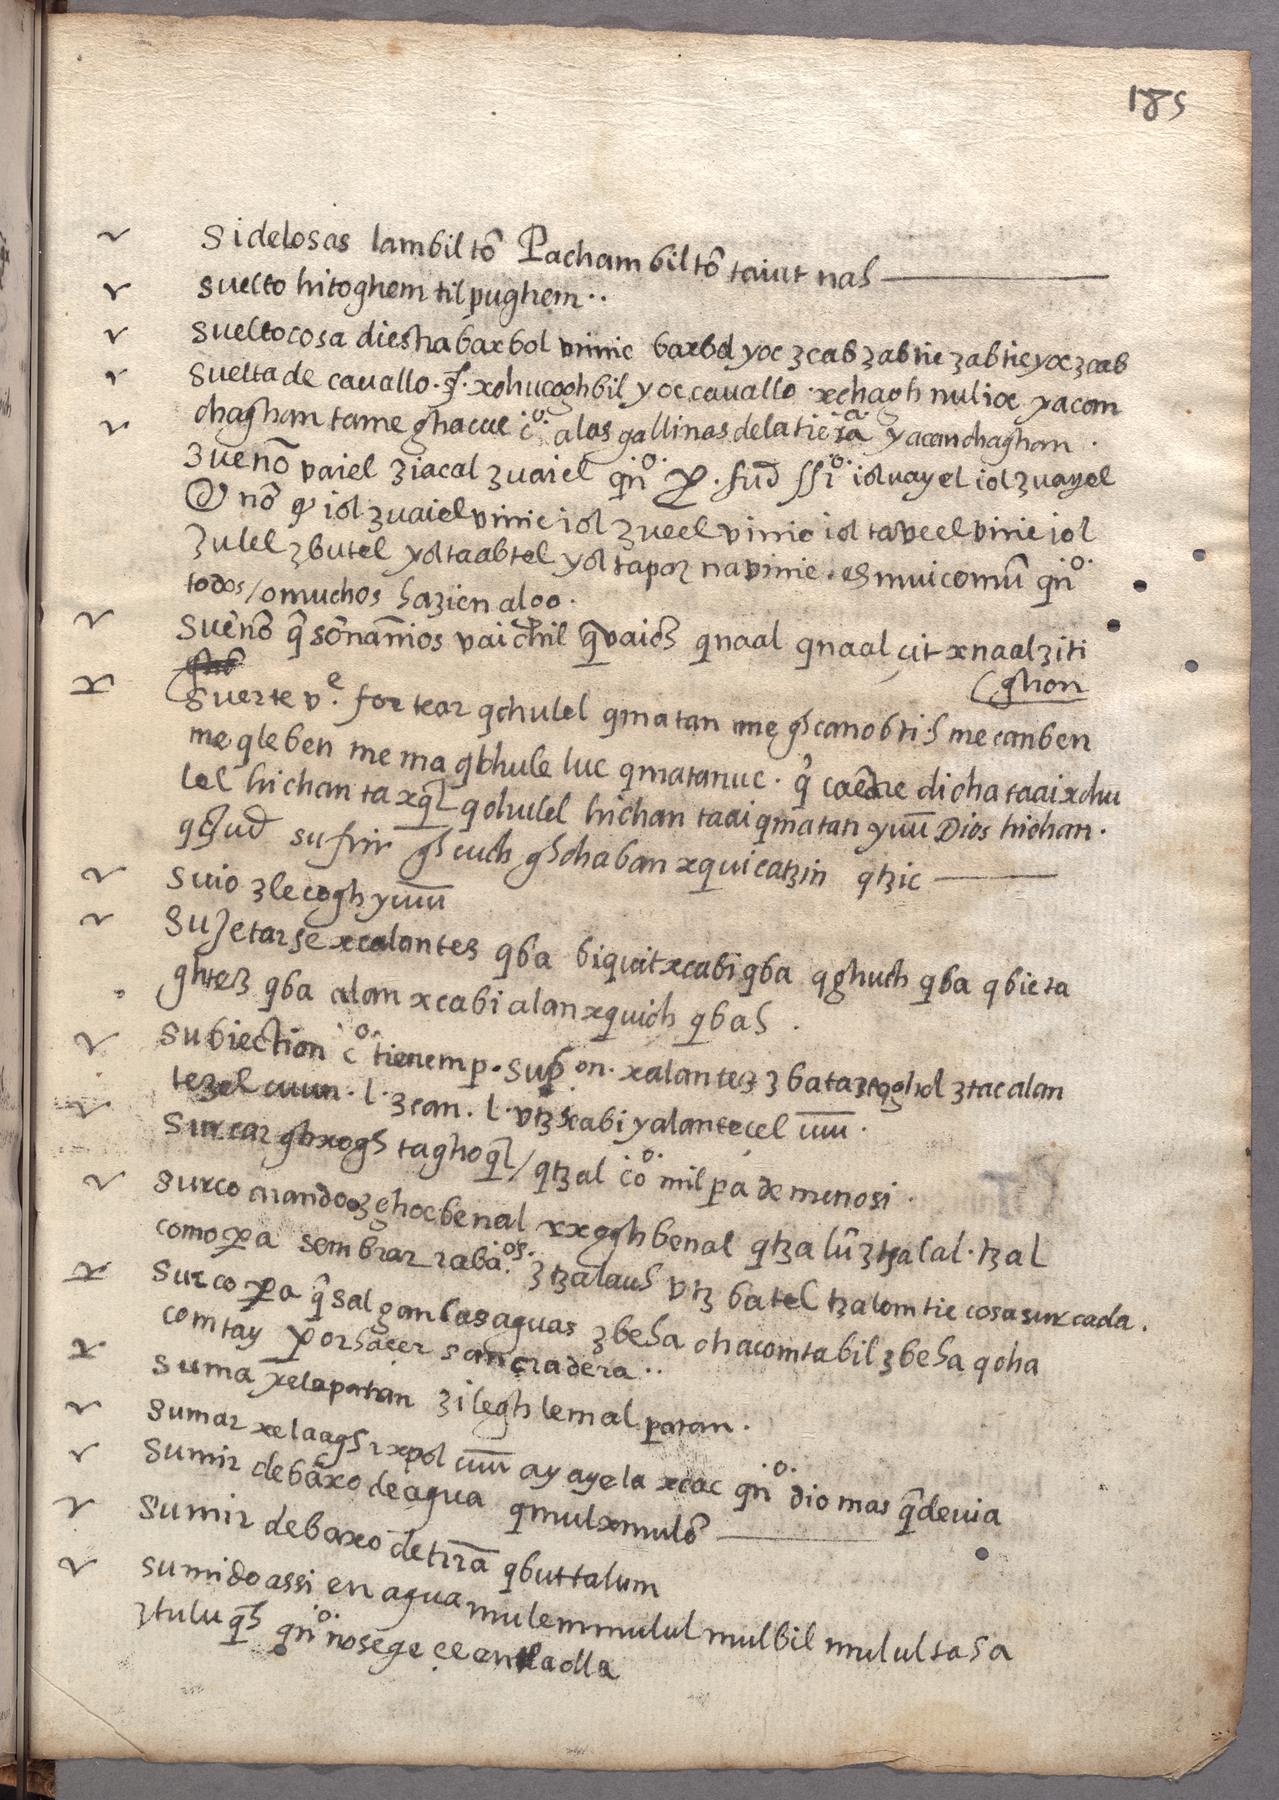 185
Sidelosas lambil tõ Pacham biltõ taiut nas
suelto hitoghem til pughem..
sueltocosa dicsha baxbol vinic baxbol yoc zcab zabtie zabtieyoc zcab
suelta de cauallo. xohucoghbil yoc cauallo. xchagh nulioc yacom
chaghan tame ghacue c̃o. alas gallinas delatierra yacanchaghan.
zueño vaiel ziacal zuaiel qñ.o iol vayel iol zuayel
nõ iol zuaiel vinic iol zueel vinic iol taveel vinic iol
zulel zbutel yoltaabtel yol tapoz navinic. es mui comũ qñ.o
todos / omuchos hazien algo.
sueño q̃ soñamos vaichil q̃vaich qnaal qnaal çit xnaalziti
(ghon
suerte v.e for tear qchulel qmatan me canobtis me canben
me qleben me ma qchule luc qmatanuc. q̃ caẽ dicha taaixchu
lel hichan ta xql qchulel hichan taai qmatan yuũ Dios hichan.
sufrir cuch chaban xquicatzin qtzic
suio zlecogh yuũ
sujetarse xcalantes qba biquitxcabiqba qghuch qba qbicta
ghtez qba alan xcabi alanxquich qbas.
subiection c̃o tienem p. sup.on. xalantez z bataz ztacalan
tezel cuun. l. zcan. l. vtzxcabi yalanteçel uũ.
surcar taghoql / qtzal c̃o. milpa de menosi.
surco benal benal qtza lũ ztzalal. tzal
como pa sembrar rabã.os. z tzalaus vtz batel tzalomtic cosa surcada.
surco pa q̃ salgan lasaguas zbeha chacomtabil zbeha qcha
comtay por hacer sangradera..
suma xelapatan zileghlemal patan.
sumar xelaagh uũ ay ayela xcac qñ.o dio mas q̃ devia
sumir debaxo deagua qmulxmulõ
sumir debaxo detirra qbuttalum
sumido assi en agua mulemmulul mulbil mulultaha
ztuluqs qñ.o nosege ce enlaolla